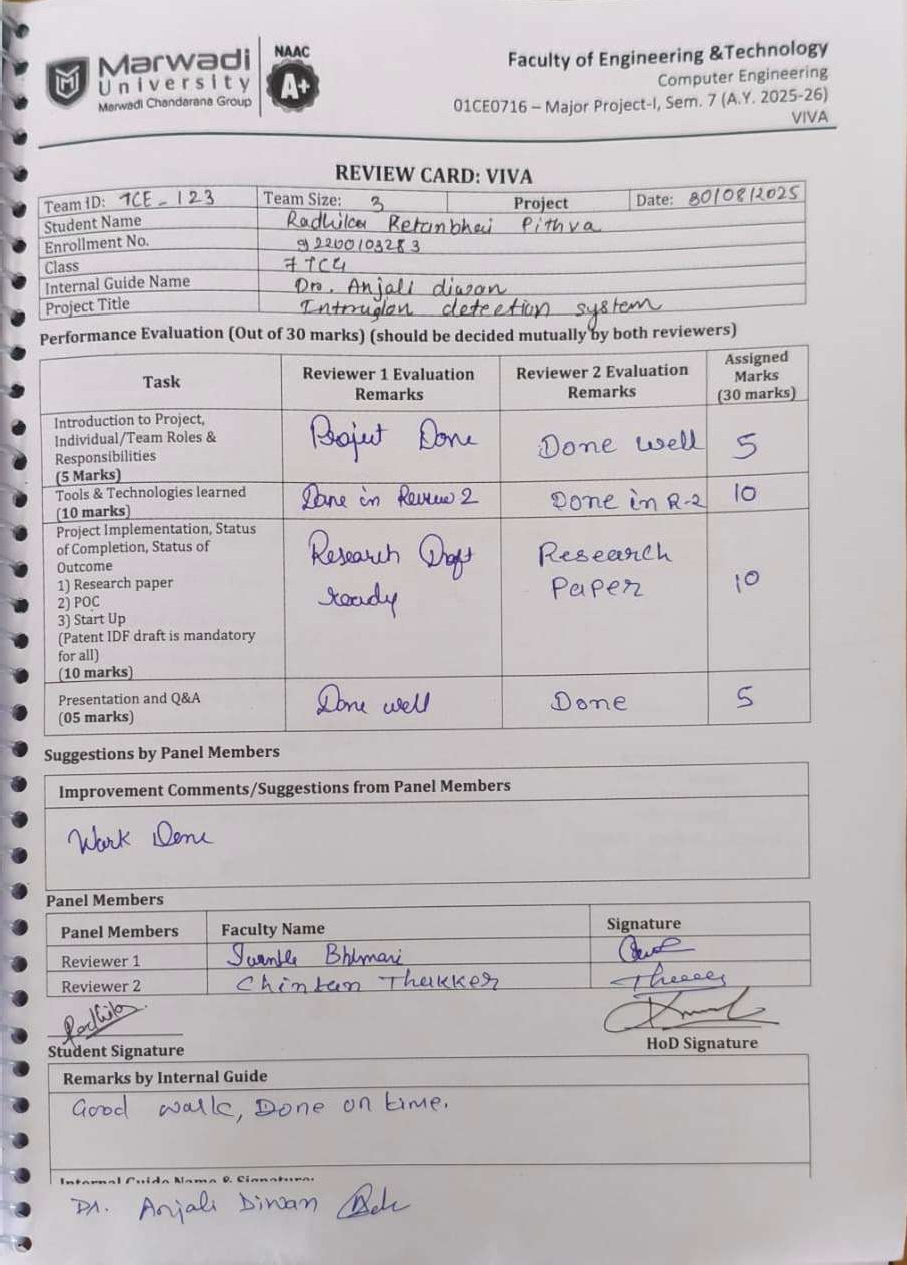 Marwadi
University
Marwadi Chandarana Group
NAAC
A+
Faculty of Engineering &Technology
Computer Engineering
01CE0716 – Major Project-I, Sem. 7 (A.Y. 2025-26)
VIVA
REVIEW CARD: VIVA
Team ID: TCE - 123 Team Size: 3 Project Date: 30/08/2025
Student Name Radhika Retanbhai Pithva
Enrollment No. 92200103283
Class 7TC4
Internal Guide Name Dr. Anjali diwan
Project Title detection system
Performance Evaluation (Out of 30 marks) (should be decided mutually by both reviewers)
Task Reviewer 1 Evaluation Remarks Reviewer 2 Evaluation Remarks Assigned Marks (30 marks)
Introduction to Project,
Individual/Team Roles &
Responsibilities
(5 Marks)
Project Done Done well 5
Tools & Technologies learned
(10 marks)
Done in Review 2 Done in R-2 10
Project Implementation, Status
of Completion, Status of
Outcome
1) Research paper
2) POC
3) Start Up
(Patent IDF draft is mandatory
for all)
(10 marks)
Research Draft
ready
Research
Paper
10
Presentation and Q&A
(05 marks)
Done well Done 5
Suggestions by Panel Members
Improvement Comments/Suggestions from Panel Members
Work Done
Panel Members
Panel Members Faculty Name Signature
Reviewer 1
Reviewer 2 Chintan Thakker
Radhika
Student Signature
HoD Signature
Remarks by Internal Guide
Good work, Done on time.
Internal Guide Name & Signature:
Dr. Anjali Diwan